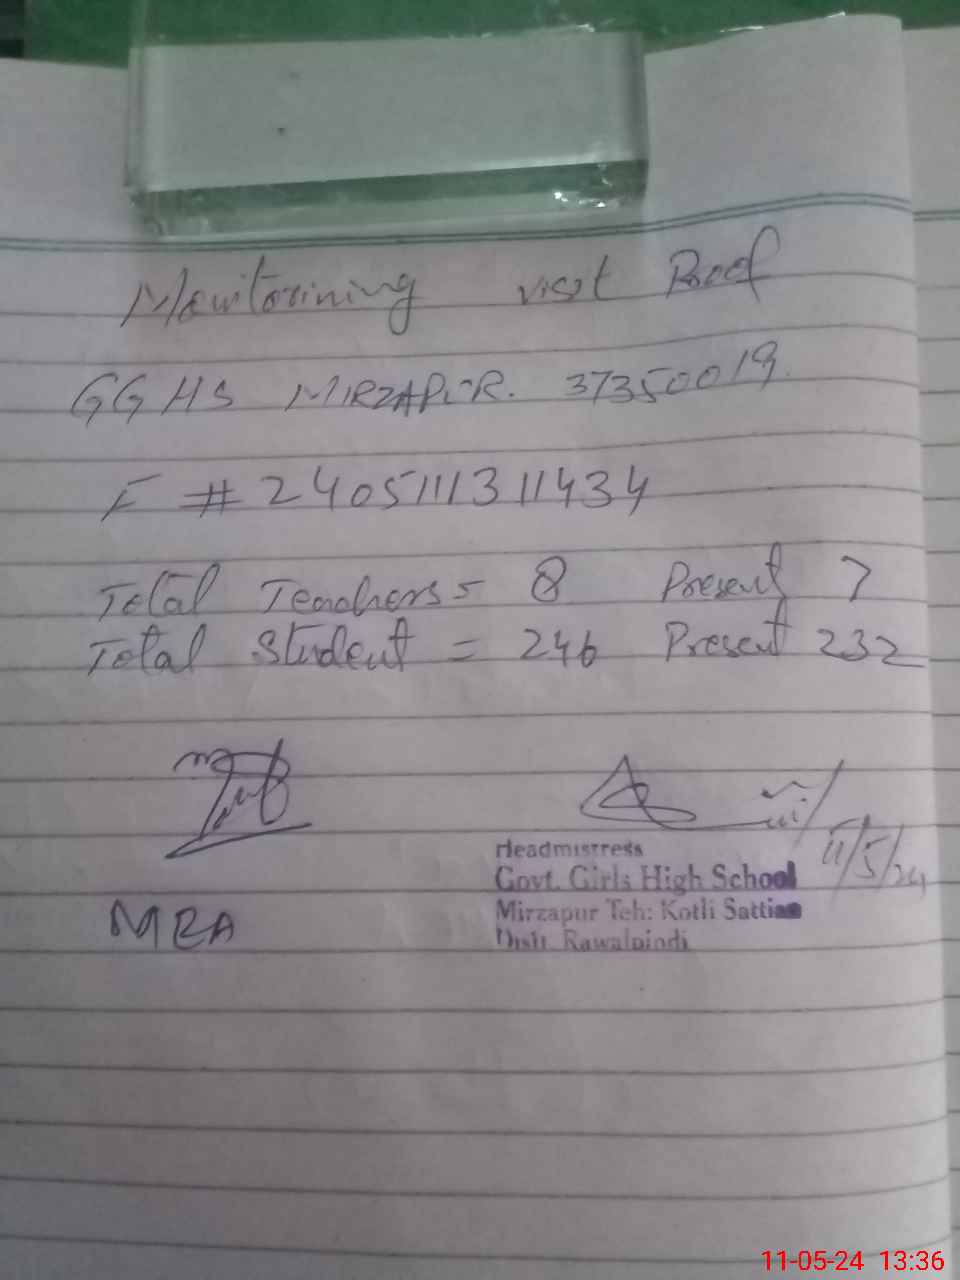 Monitorining visit Proof
GGHS MIRZAPUR. 37350019.
F # 2405111311434
Total Teachers = 8 Present 7
Total Student = 246 Present 232
11/5/24
MEA
Headmistress
Govt. Girls High School
Mirzapur Teh: Kotli Sattian
Distt. Rawalpindi
11-05-24 13:36